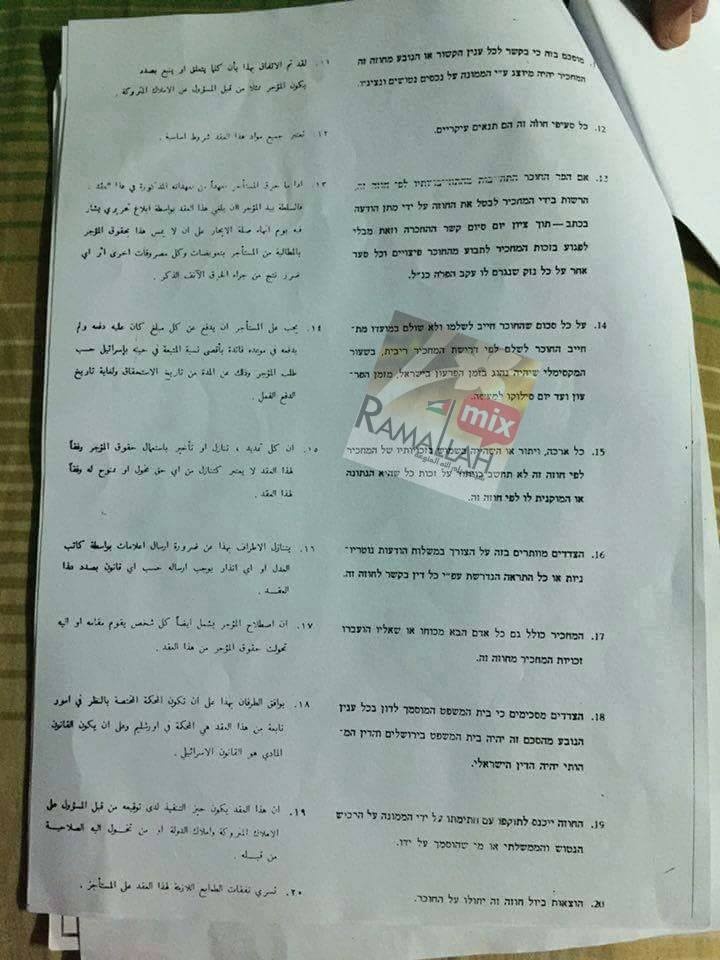 מוסכם בזה כי בקשר לכל ענין הקשור או הנובע מחוזה זה
המחכיר יהיה מיוצג ע״י הממונה על נכסים נטושים
12. כל סעיפי חוזה זה הם תנאים עיקריים.
13. אם הפר החוכר לפי חוזה זה,
הרשות בידי המחכיר לבטל את החוזה על ידי מתן הודעה
בכתב — תוך ציון יום סיום קשר ההחכרה וזאת מבלי
לפגוע בזכות המחכיר לתבוע מהחוכר פיצויים וכל סעד
אחר על כל נזק שנגרם לו עקב הפרה כנ״ל.
14. על כל סכום שהחוכר חייב לשלמו ולא שולם במועדו מת־
חייב החוכר לשלם לפי דרישת המחכיר ריבית, בשעור
המקסימלי שיהיה נהוג בזמן הפרעון בישראל, מזמן הפר־
עון ועד יום סילוקו למעשה.
15. כל ארכה, ויתור או השהייה בשמוש בזכויותיו של המחכיר
לפי חוזה זה לא תחשב כויתור על זכות כל שהיא הנתונה
או המוקנית לו לפי חוזה זה.
16. הצדדים מוותרים בזה על הצורך במשלוח הודעות נוטריו־
ניות או כל התראה הנדרשת עפ״י כל דין בקשר לחוזה זה.
17. המחכיר כולל גם כל אדם הבא מכוחו או שאליו הועברו
זכויות המחכיר מחוזה זה.
18. הצדדים מסכימים כי בית המשפט המוסמך לדון בכל ענין
הנובע מהסכם זה יהיה בית המשפט בירושלים והדין המ־
הותי יהיה הדין הישראלי.
19. החוזה ייכנס לתוקפו עם חתימתו על ידי הממונה על הרכוש
הנטוש והממשלתי או מי שהוסמך על ידו.
20. הוצאות ביול חוזה זה יחולו על החוכר.
١١. لقد تم الاتفاق بهذا بأن كلما يتعلق او ينبع بصدد
يكون المؤجر ممثلا من قبل المسؤول عن الاملاك المتروكة .
١٢. تعتبر جميع مواد هذا العقد شروط اساسية .
١٣. اذا ما خرق المستأجر تعهداً من تعهداته المذكورة في هذا العقد .
فالسلطة بيد المؤجر لان يلغي هذا العقد بواسطة ابلاغ تحريري يشار
فيه يوم انهاء صلة الايجار على ان لا يمس هذا بحقوق المؤجر
بالمطالبة من المستأجر بتعويضات وكل مصروفات اخرى اثر اي
ضرر نتج من جراء الخرق الآنف الذكر .
١٤. يجب على المستأجر ان يدفع عن كل مبلغ كان عليه دفعه ولم
يدفعه في موعده فائدة بأقصى نسبة المتبعة في حينه بإسرائيل حسب
طلب المؤجر وذلك عن المدة من تاريخ الاستحقاق ولغاية تاريخ
الدفع الفعلي .
١٥. ان كل تمديد ، تنازل او تأخير باستعمال حقوق المؤجر وفقاً
لهذا العقد لا يعتبر كتنازل من اي حق مخول او ممنوح له وفقاً
لهذا العقد .
١٦. يتنازل الاطراف بهذا عن ضرورة ارسال اعلامات بواسطة كاتب
العدل او اي انذار يوجب ارساله حسب اي قانون بصدد هذا
العقــد .
١٧. ان اصطلاح المؤجر يشمل ايضاً كل شخص يقوم مقامه او اليه
تحولت حقوق المؤجر من هذا العقد .
١٨. يوافق الطرفان بهذا على ان تكون المحكمة المختصة بالنظر في امور
نابعة من هذا العقد هي المحكمة في اورشليم وعلى ان يكون القانون
المادي هو القانون الاسرائيلي .
١٩. ان هذا العقد يكون حيز التنفيذ لدى توقيعه من قبل المسؤول على
الاملاك المتروكة واملاك الدولة او من تخول اليه الصلاحية
من قبله .
٢٠. تسري نفقات الطوابع اللازمة لهذا العقد على المستأجر .
mix
RAMALLAH